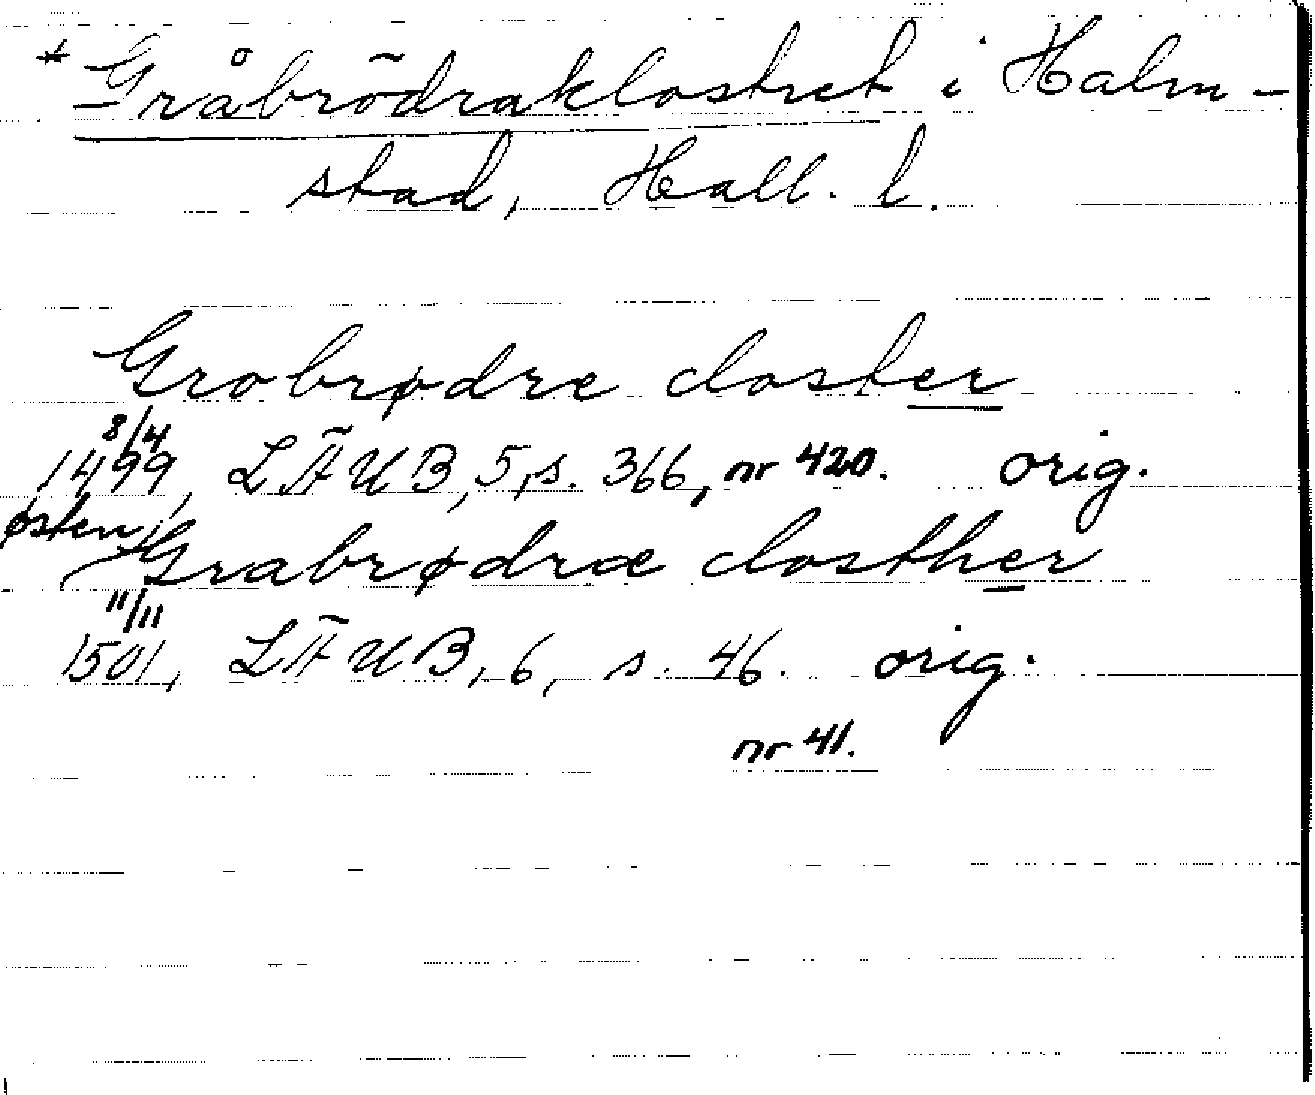 * Gråbrödraklostret i Halm-
stad, Hall. l.
Grobrødre closter
8/4
1499, LÄUB, 5, s. 366, nr 420. orig.
østen
Grabrødræ closther
11/11
1501, LÄUB, 6, s. 46. orig.
nr 41.